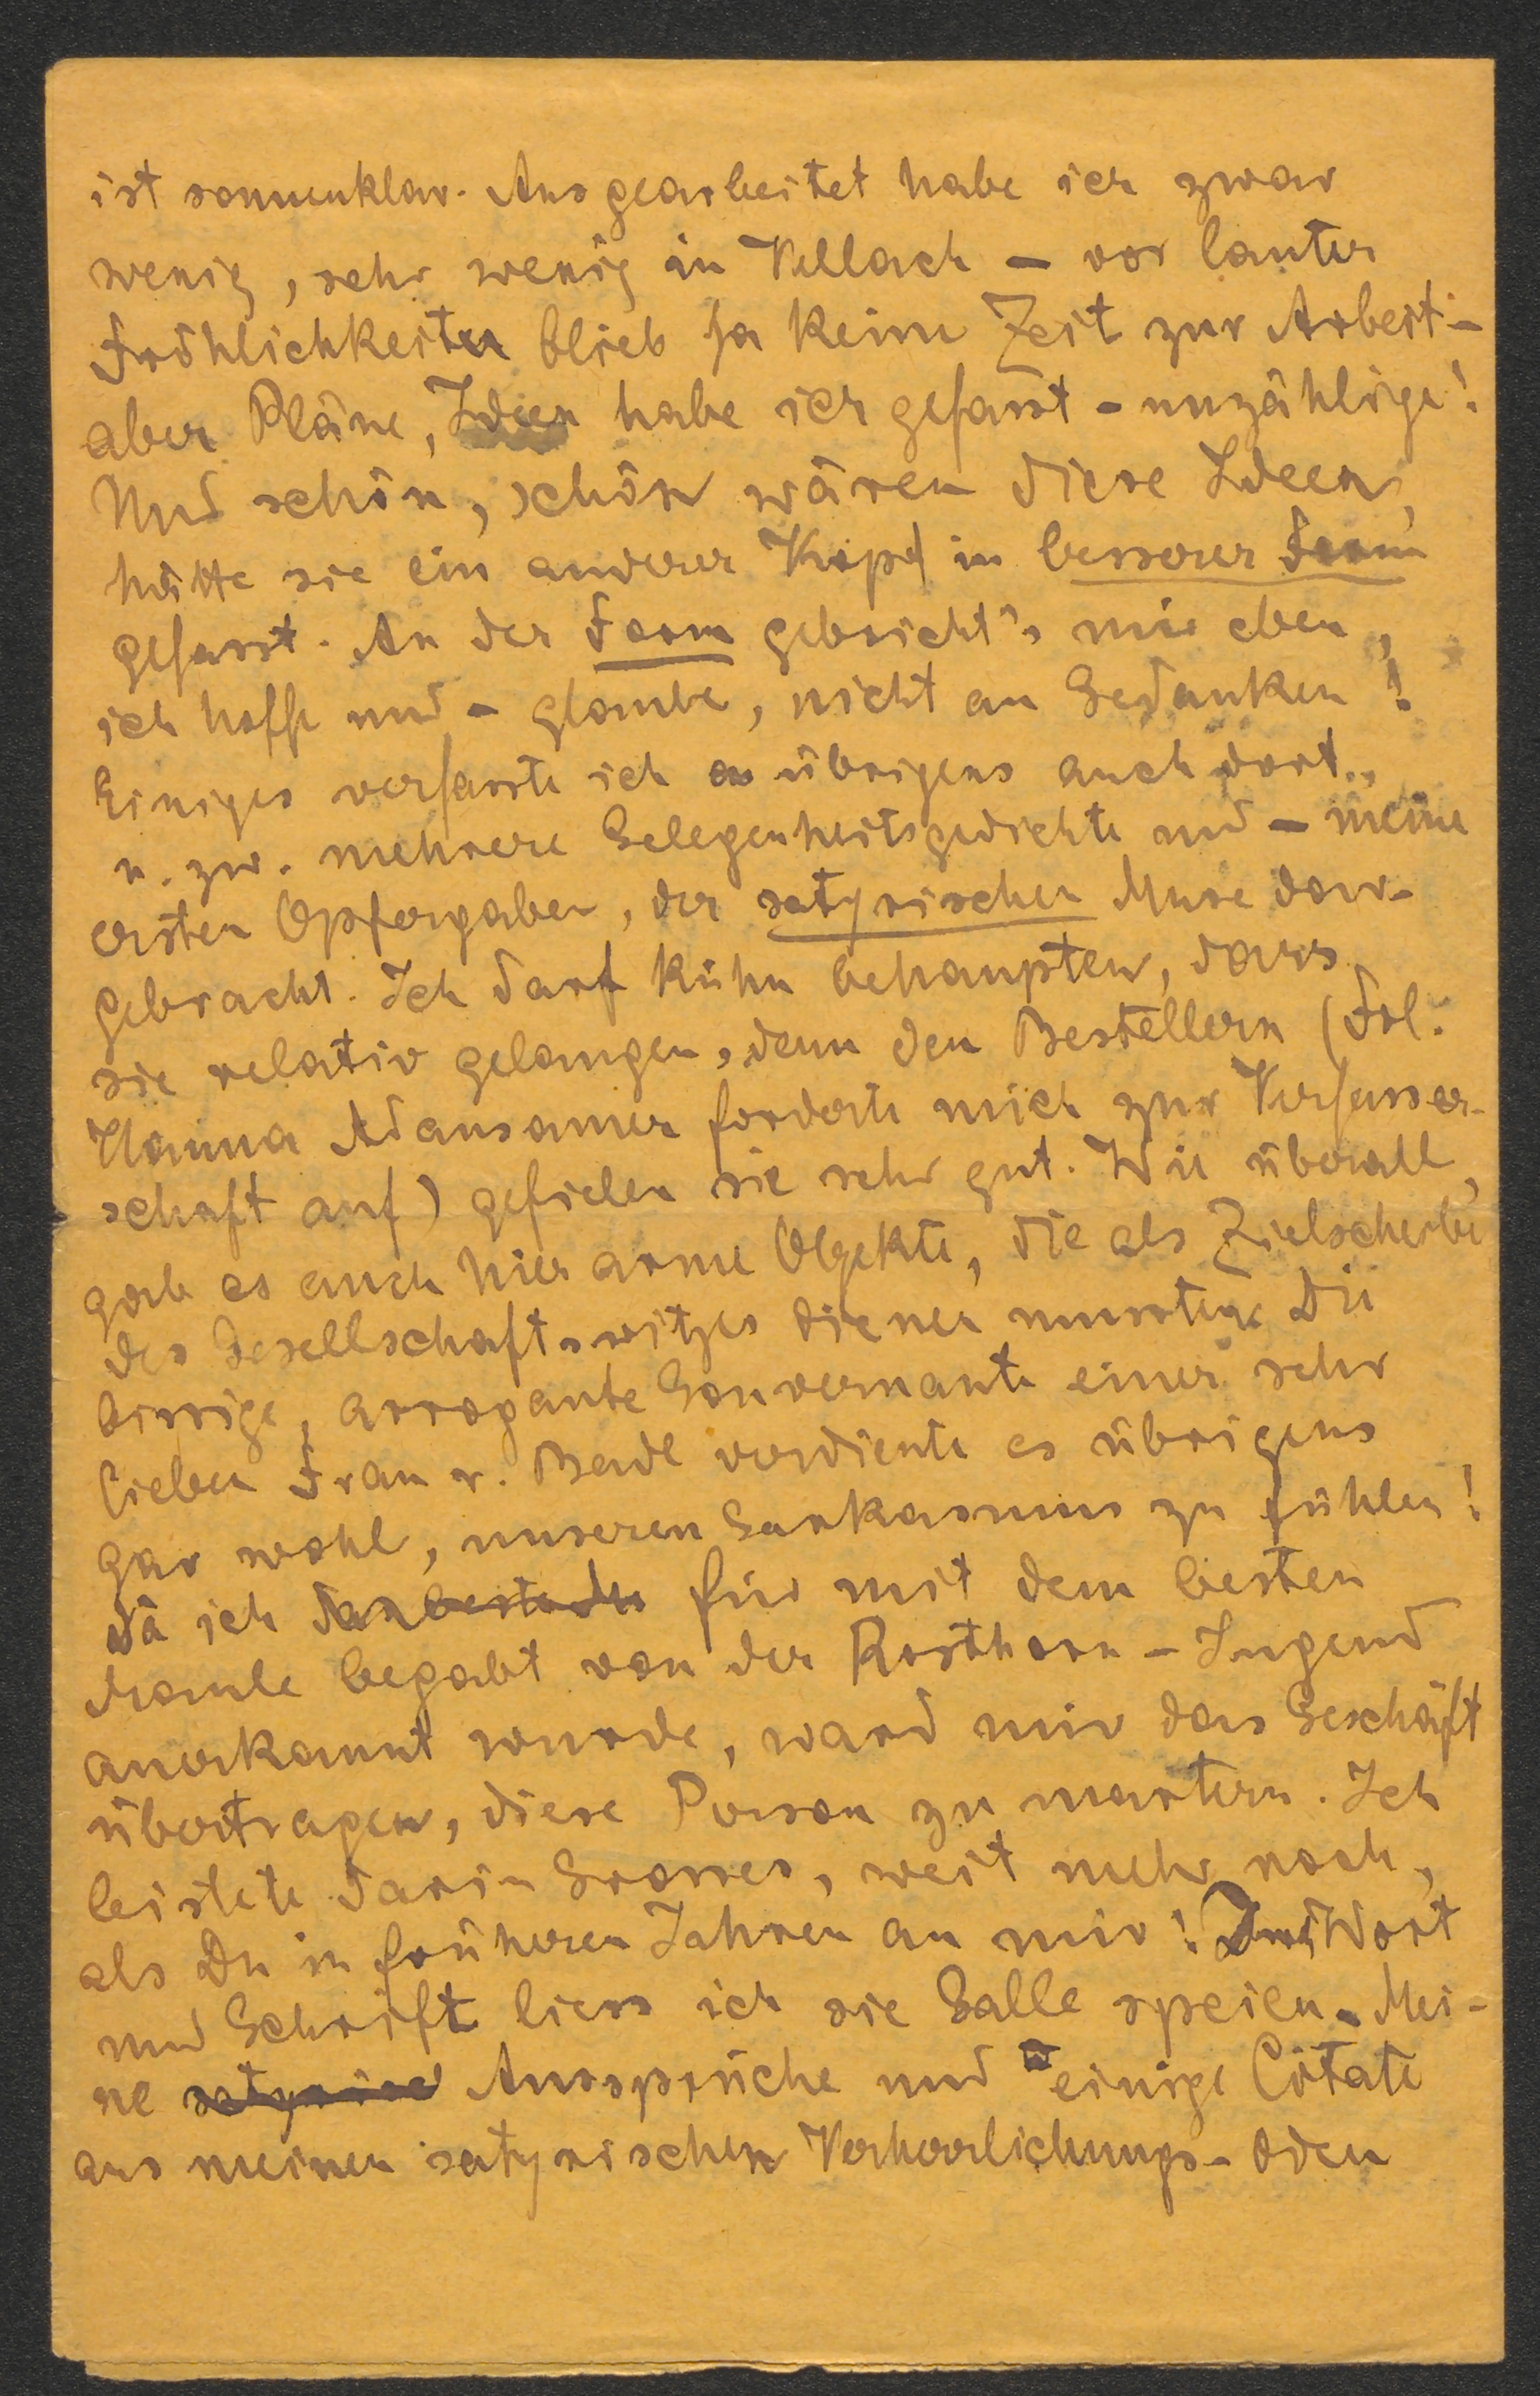 ist sonnenklar. Ausgearbeitet habe ich zwar
wenig, sehr wenig in Vellach – vor lauter
Fröhlichkeiten blieb ja keine Zeit zur Arbeit –
aber Pläne, Ideen habe ich gefasst – unzählige!
Und schön, schön wären diese Ideen,
hätte sie ein anderer Kopf in besserer Form
gefasst. An der Form gebricht's mir eben,
ich hoffe und – glaube, nicht an Gedanken!
Einiges verfasste ich übrigens auch dort.,
u. zw. mehrere Gelegenheitsgedichte und – meine
ersten Opfergaben, der satyrischen Muse dar-
gebracht. Ich darf kühn behaupten, dass
sie relativ gelangen, denn den Bestellern (Frl.
Hanna Adansamer forderte mich zur Verfasser-
schaft auf) gefielen sie sehr gut. Wie überall,
gab es auch hier arme Objekte, die als Zielscheibe
des Gesellschaftswitzes dienen mussten. Die
bissige, arrogante Gouvernante einer sehr
lieben Frau v. Bendl verdiente es übrigens
gar wohl, unseren Sarkasmus zu fühlen!
Da ich für mit dem besten
Maule begabt von der Rosthorn-Jugend
anerkannt wurde, ward mir das Geschäft
übertragen, diese Person zu martern. Ich
leistete darin Grosses, weit mehr noch,
als Du in früheren Jahren an mir! In Wort
und Schrift liess ich sie Galle speien. Mei-
ne Aussprüche und einige Citate
aus meinen satyrischen Verherrlichungs-Oden